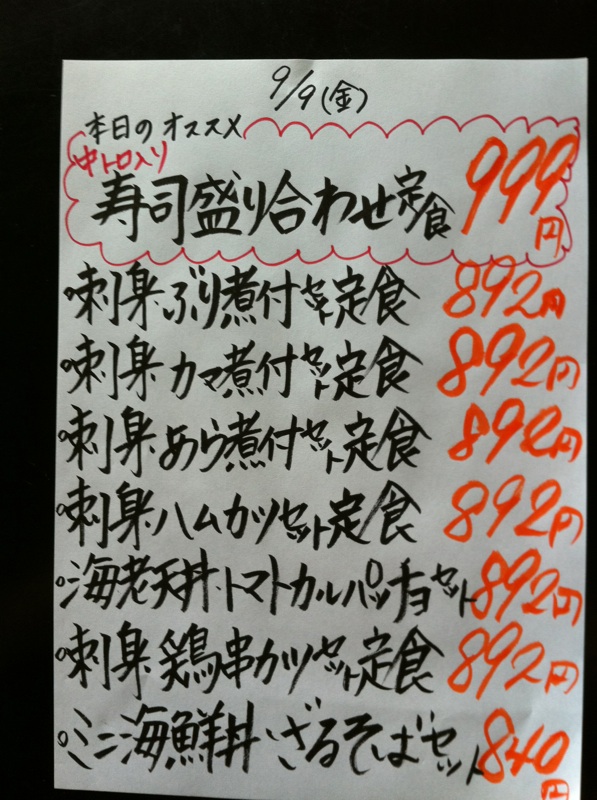 9/9(金)
本日のオススメ
中トロ入り
寿司盛り合わせ定食 999円
刺身ぶり煮付セット定食 892円
刺身カマ煮付セット定食 892円
刺身あら煮付セット定食 892円
刺身ハムカツセット定食 892円
海老天丼・トマトカルパッチョセット 892円
刺身鶏串カツセット定食 892円
ミニ海鮮丼・ざるそばセット 840円